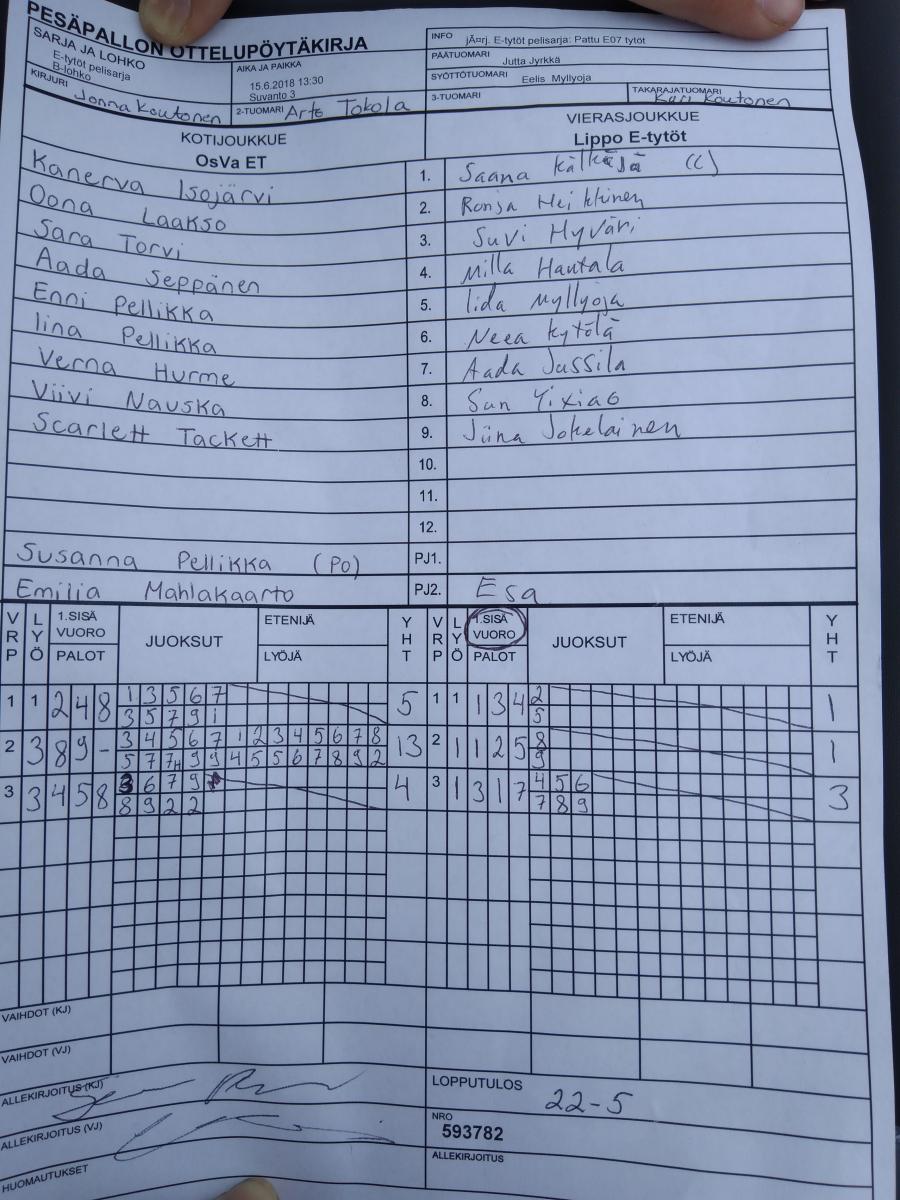 PESÄPALLON OTTELUPÖYTÄKIRJA
SARJA JA LOHKO
E-tytöt pelisarja
B-lohko
AIKA JA PAIKKA
15.6.2018 13:30
Suvanto 3
KIRJURI Jonna Koutonen
2-TUOMARI Arto Tokola
INFO jÃ¤rj. E-tytöt pelisarja: Pattu E07 tytöt
PÄÄTUOMARI Jutta Jyrkkä
SYÖTTÖTUOMARI Eelis Myllyoja
3-TUOMARI
TAKARAJATUOMARI Kari Koutonen
KOTIJOUKKUE VIERASJOUKKUE
OsVa ET Lippo E-tytöt
Kanerva Isojärvi 1. Saana Kälkäjä (C)
Oona Laakso 2. Ronja Heikkinen
Sara Torvi 3. Suvi Hyväri
Aada Seppänen 4. Milla Hautala
Enni Pellikka 5. Iida Myllyoja
Iina Pellikka 6. Neea Kytölä
Verna Hurme 7. Aada Jussila
Viivi Nauska 8. Sun Yixiao
Scarlett Tackett 9. Jiina Jokelainen
10.
11.
12.
Susanna Pellikka (PO) PJ1.
Emilia Mahlakaarto PJ2. Esa
VRP LYÖ 1.SISÄ VUORO PALOT JUOKSUT ETENIJÄ LYÖJÄ YHT VRP LYÖ 1.SISÄ VUORO PALOT JUOKSUT ETENIJÄ LYÖJÄ YHT
1 1 2 4 8 1 3 5 6 7 5 1 1 1 3 4 2 1
3 5 7 9 1 5
2 3 8 9 - 3 4 5 6 7 1 2 3 4 5 6 7 8 13 2 1 1 2 5 8 1
5 7 7H 9 9 4 5 5 6 7 8 9 2 9
3 3 4 5 8 3 6 7 9 4 3 1 3 1 7 4 5 6 3
8 9 2 2 7 8 9
VAIHDOT (KJ)
VAIHDOT (VJ)
ALLEKIRJOITUS (KJ)
LOPPUTULOS 22-5
ALLEKIRJOITUS (VJ)
NRO
593782
HUOMAUTUKSET
ALLEKIRJOITUS